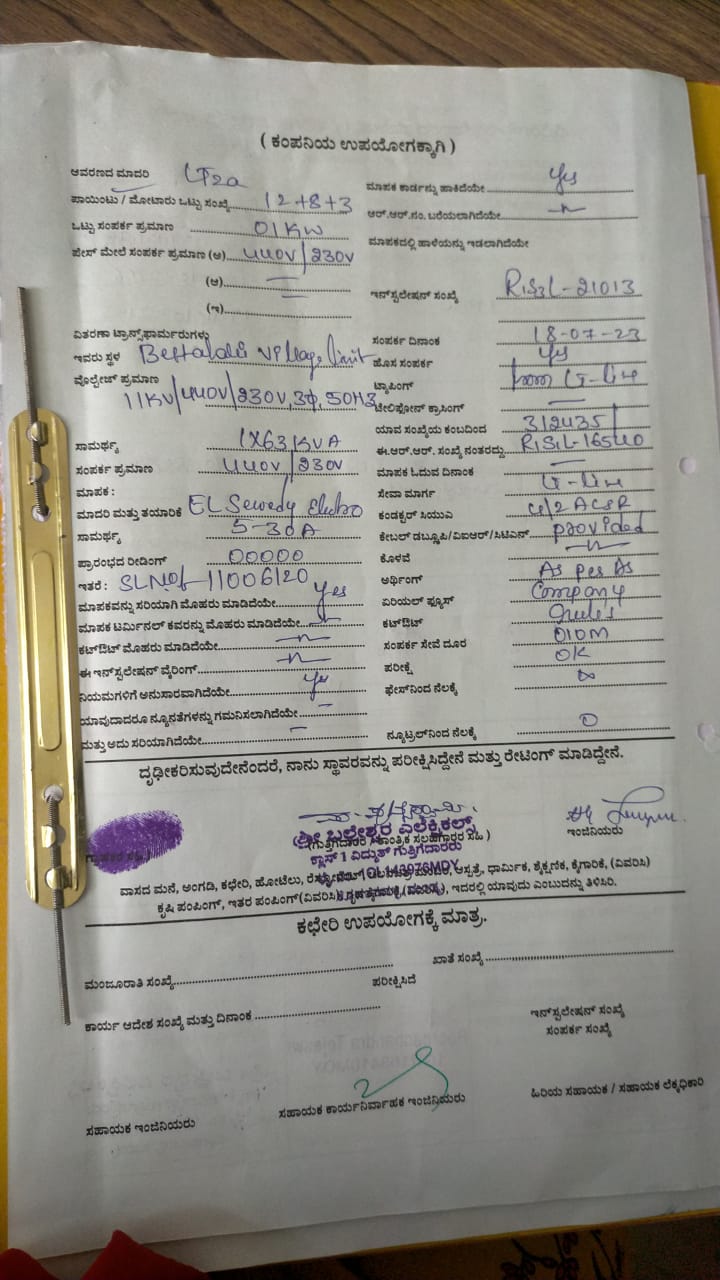 ( ಕಂಪನಿಯ ಉಪಯೋಗಕ್ಕಾಗಿ )
ಆವರಣದ ಮಾದರಿ LT2a
ಪಾಯಿಂಟು / ಮೋಟಾರು ಒಟ್ಟು ಸಂಖ್ಯೆ 12+8+3
ಒಟ್ಟು ಸಂಪರ್ಕ ಪ್ರಮಾಣ 01KW
ಪೇಸ್ ಮೇಲೆ ಸಂಪರ್ಕ ಪ್ರಮಾಣ (ಅ) 440V/230V
(ಆ)
(ಇ)
ವಿತರಣಾ ಟ್ರಾನ್ಸ್‌ಫಾರ್ಮರುಗಳು
ಇವರು ಸ್ಥಳ Village limit
ವೋಲ್ಟೇಜ್ ಪ್ರಮಾಣ
11KV/440V/230V, 3φ, 50HZ
ಸಾಮರ್ಥ್ಯ 1X63KVA
ಸಂಪರ್ಕ ಪ್ರಮಾಣ 440V/230V
ಮಾಪಕ :
ಮಾದರಿ ಮತ್ತು ತಯಾರಿಕೆ EL Sewedy Electro
ಸಾಮರ್ಥ್ಯ 5-30A
ಪ್ರಾರಂಭದ ರೀಡಿಂಗ್ 00000
ಇತರೆ : SLNO:-11006120
ಮಾಪಕವನ್ನು ಸರಿಯಾಗಿ ಮೊಹರು ಮಾಡಿದೆಯೇ Yes
ಮಾಪಕ ಟರ್ಮಿನಲ್ ಕವರನ್ನು ಮೊಹರು ಮಾಡಿದೆಯೇ
ಕಟ್‌ಔಟ್ ಮೊಹರು ಮಾಡಿದೆಯೇ
ಈ ಇನ್‌ಸ್ಟಲೇಷನ್ ವೈರಿಂಗ್
ನಿಯಮಗಳಿಗೆ ಅನುಸಾರವಾಗಿದೆಯೇ Yes
ಯಾವುದಾದರೂ ನ್ಯೂನತೆಗಳನ್ನು ಗಮನಿಸಲಾಗಿದೆಯೇ
ಮತ್ತು ಅದು ಸರಿಯಾಗಿದೆಯೇ
ಮಾಪಕ ಕಾರ್ಡನ್ನು ಹಾಕಿದೆಯೇ Yes
ಆರ್.ಆರ್.ನಂ. ಬರೆಯಲಾಗಿದೆಯೇ
ಮಾಪಕದಲ್ಲಿ ಹಾಳೆಯನ್ನು ಇಡಲಾಗಿದೆಯೇ
ಇನ್‌ಸ್ಟಲೇಷನ್ ಸಂಖ್ಯೆ RISIL-21013
ಸಂಪರ್ಕ ದಿನಾಂಕ 18-07-23
ಹೊಸ ಸಂಪರ್ಕ Yes
ಟ್ಯಾಪಿಂಗ್ from LT-line
ಟೆಲಿಫೋನ್ ಕ್ರಾಸಿಂಗ್
ಯಾವ ಸಂಖ್ಯೆಯ ಕಂಬದಿಂದ 312435
ಈ.ಆರ್.ಆರ್. ಸಂಖ್ಯೆ ನಂತರದ್ದು RISIL-16540
ಮಾಪಕ ಓದುವ ದಿನಾಂಕ
ಸೇವಾ ಮಾರ್ಗ LT-line
ಕಂಡಕ್ಟರ್ ಸಿಯುಎ ACSR
ಕೇಬಲ್ ಡಬ್ಲ್ಯೂಪಿ/ವಿಐಆರ್/ಸಿಟಿಎಸ್ provided
ಕೊಳವೆ
ಅರ್ಥಿಂಗ್ As per As
ಏರಿಯಲ್ ಫ್ಯೂಸ್ Company
ಕಟ್‌ಔಟ್ rules
ಸಂಪರ್ಕ ಸೇವೆ ದೂರ 010M
ಪರೀಕ್ಷೆ OK
ಫೇಸ್‌ನಿಂದ ನೆಲಕ್ಕೆ ∞
ನ್ಯೂಟ್ರಲ್‌ನಿಂದ ನೆಲಕ್ಕೆ 0
ದೃಢೀಕರಿಸುವುದೇನೆಂದರೆ, ನಾನು ಸ್ಥಾವರವನ್ನು ಪರೀಕ್ಷಿಸಿದ್ದೇನೆ ಮತ್ತು ರೇಟಿಂಗ್ ಮಾಡಿದ್ದೇನೆ.
ಶ್ರೀ ಬಲೇಶ್ವರ ಎಲೆಕ್ಟ್ರಿಕಲ್ಸ್
ಕ್ಲಾಸ್ 1 ವಿದ್ಯುತ್ ಗುತ್ತಿಗೆದಾರರು
ಇಂಜಿನಿಯರು
ವಾಸದ ಮನೆ, ಅಂಗಡಿ, ಕಛೇರಿ, ಹೋಟೆಲು, ಆಸ್ಪತ್ರೆ, ಧಾರ್ಮಿಕ, ಶೈಕ್ಷಣಿಕ, ಕೈಗಾರಿಕೆ, (ವಿವರಿಸಿ)
ಕೃಷಿ ಪಂಪಿಂಗ್, ಇತರ ಪಂಪಿಂಗ್(ವಿವರಿಸಿ) ಇದರಲ್ಲಿ ಯಾವುದು ಎಂಬುದನ್ನು ತಿಳಿಸಿರಿ.
ಕಛೇರಿ ಉಪಯೋಗಕ್ಕೆ ಮಾತ್ರ.
ಮಂಜೂರಾತಿ ಸಂಖ್ಯೆ
ಖಾತೆ ಸಂಖ್ಯೆ
ಪರೀಕ್ಷಿಸಿದೆ
ಕಾರ್ಯ ಆದೇಶ ಸಂಖ್ಯೆ ಮತ್ತು ದಿನಾಂಕ
ಇನ್‌ಸ್ಟಲೇಷನ್ ಸಂಖ್ಯೆ
ಸಂಪರ್ಕ ಸಂಖ್ಯೆ
ಸಹಾಯಕ ಇಂಜಿನಿಯರು
ಸಹಾಯಕ ಕಾರ್ಯನಿರ್ವಾಹಕ ಇಂಜಿನಿಯರು
ಹಿರಿಯ ಸಹಾಯಕ / ಸಹಾಯಕ ಲೆಕ್ಕಧಿಕಾರಿ